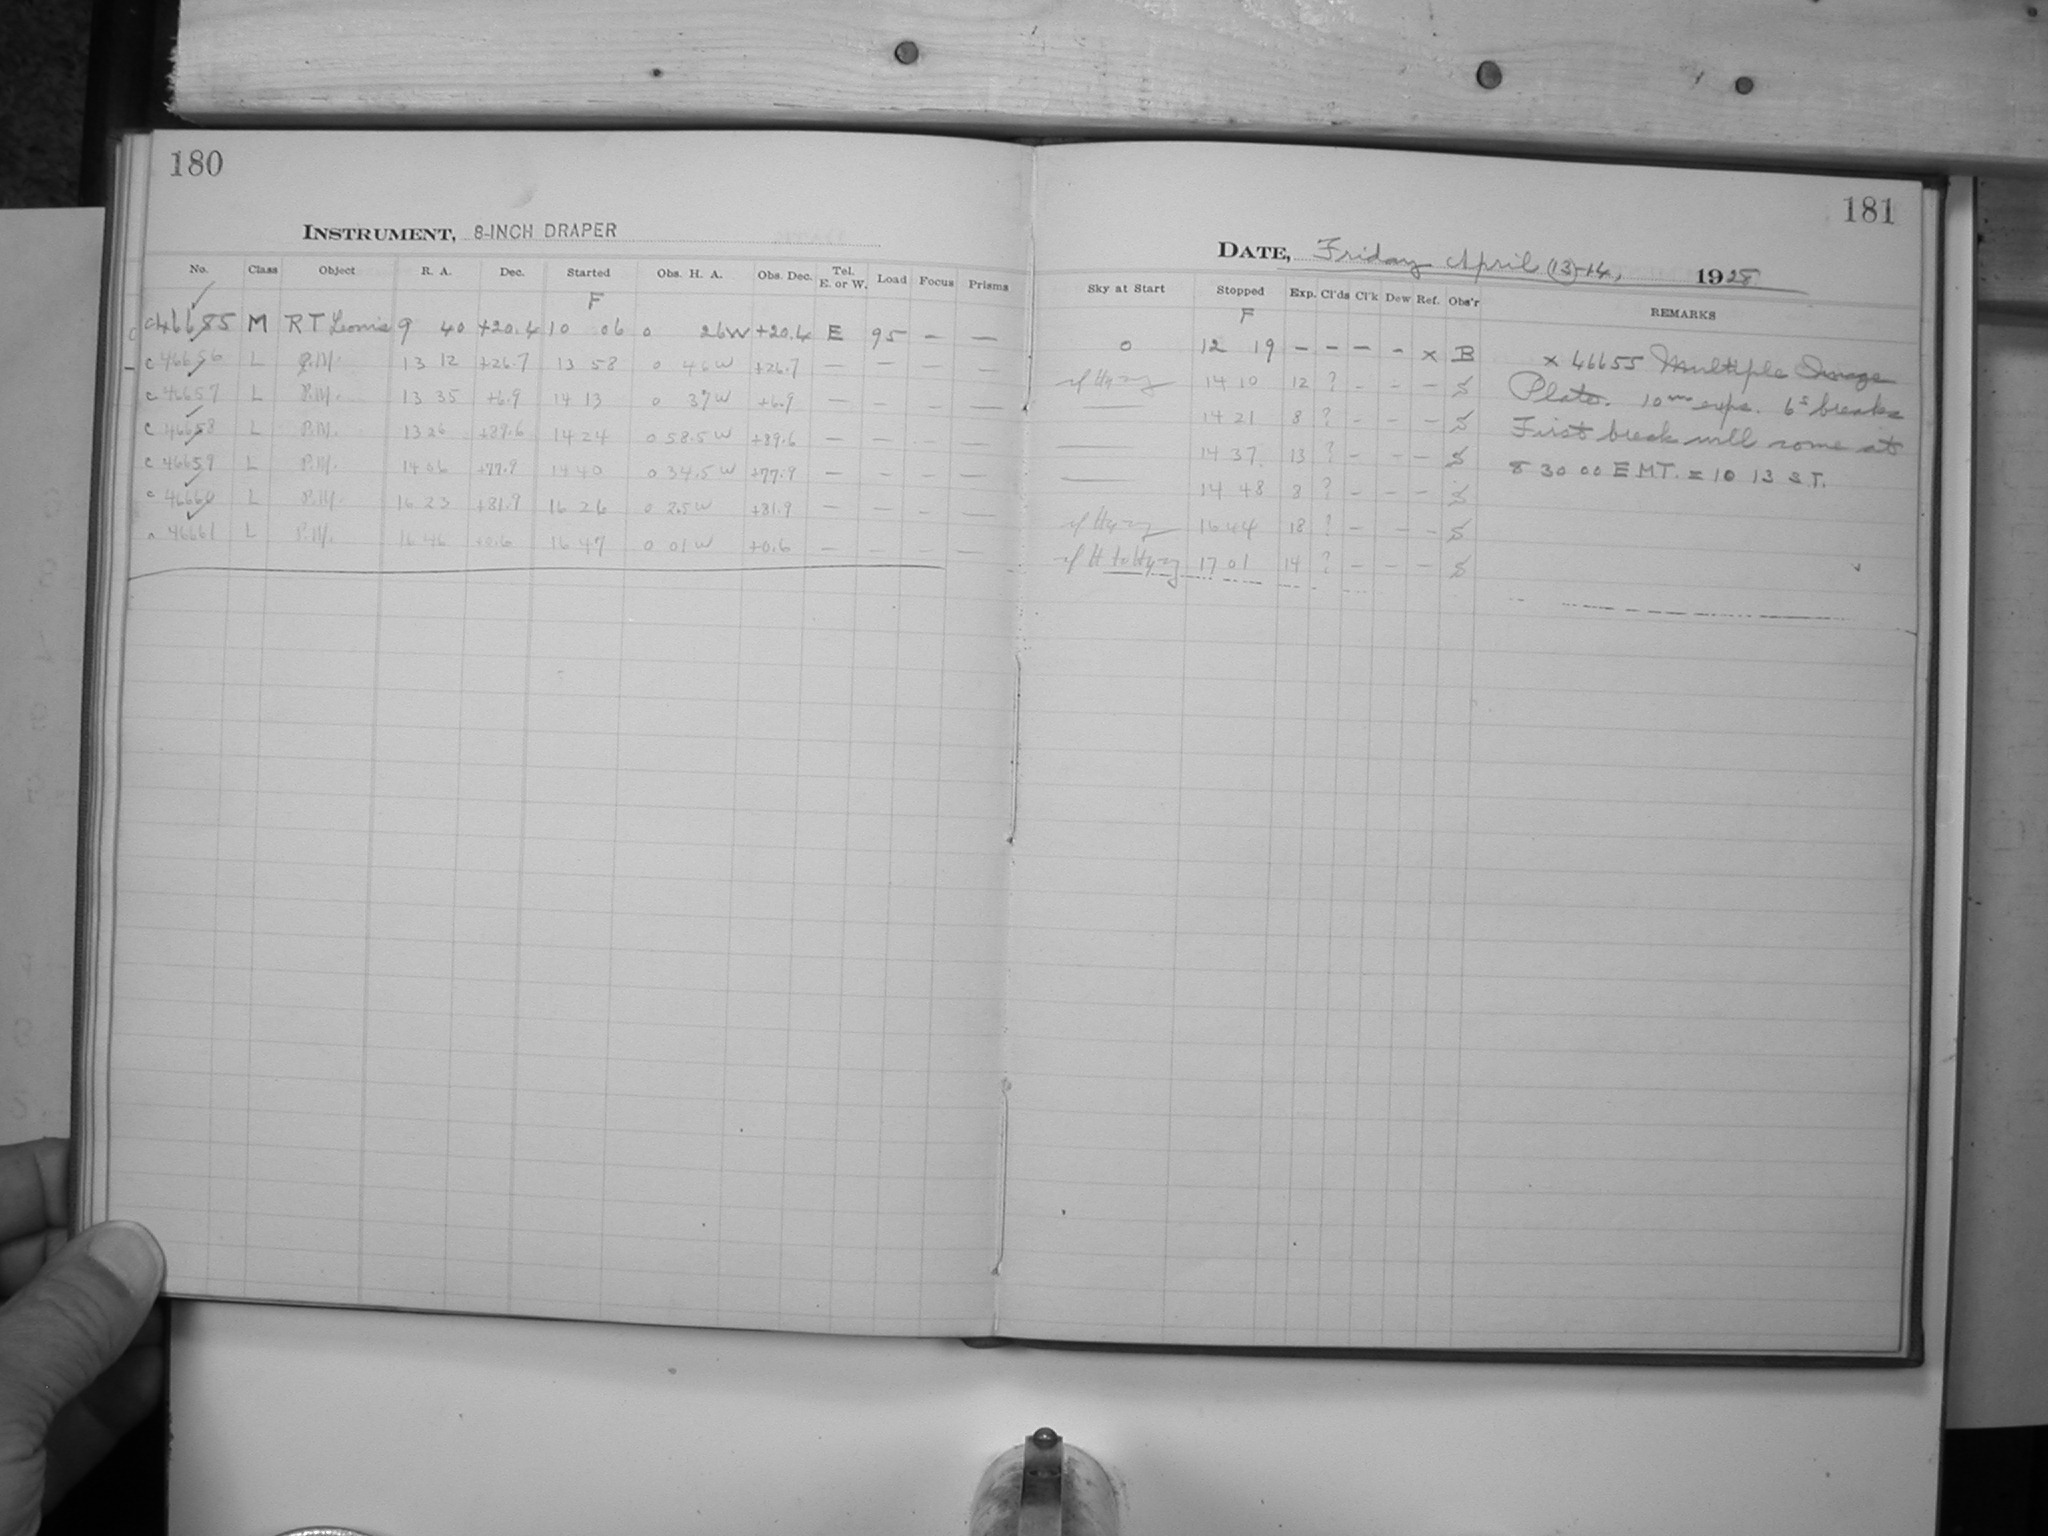 180
INSTRUMENT, 8-INCH DRAPER
No. Class Object R. A. Dec. Started Obs. H. A. Obs. Dec. Tel. E. or W. Load Focus Prisms
F
C46655 M RT Leonis 9 40 +20.4 10 06 0 26W +20.4 E 95 — —
C 46656 L P.M. 13 12 +26.7 13 58 0 46W +26.7 — — — —
C 46657 L P.M. 13 35 +6.9 14 13 0 37W +6.9 — — — —
C 46658 L P.M. 13 26 14 24 0 58.5W — — — —
C 46659 L P.M. 14 06 +77.9 14 40 0 34.5W +77.9 — — — —
C 46660 L P.M. 16 23 +81.9 16 26 0 2.5W +81.9 — — — —
46661 L P.M. 16 46 +0.6 16 47 0 01W +0.6 — — — —
181
DATE, Friday April (13)-14, 1928
Sky at Start Stopped Exp. Cl'ds Cl'k Dew Ref. Obs'r REMARKS
F
0 12 19 — — — - x B x 46655 Multiple Image
14 10 12 ? - - — S Plate. 10m exps. 6s breaks
—— 14 21 8 ? - - — S First break will come at
—— 14 37 13 ? - - — S 8 30 00 EMT. = 10 13 S.T.
—— 14 48 8 ? - - — S
16 44 18 ? — — — S
17 01 14 ? — — — S